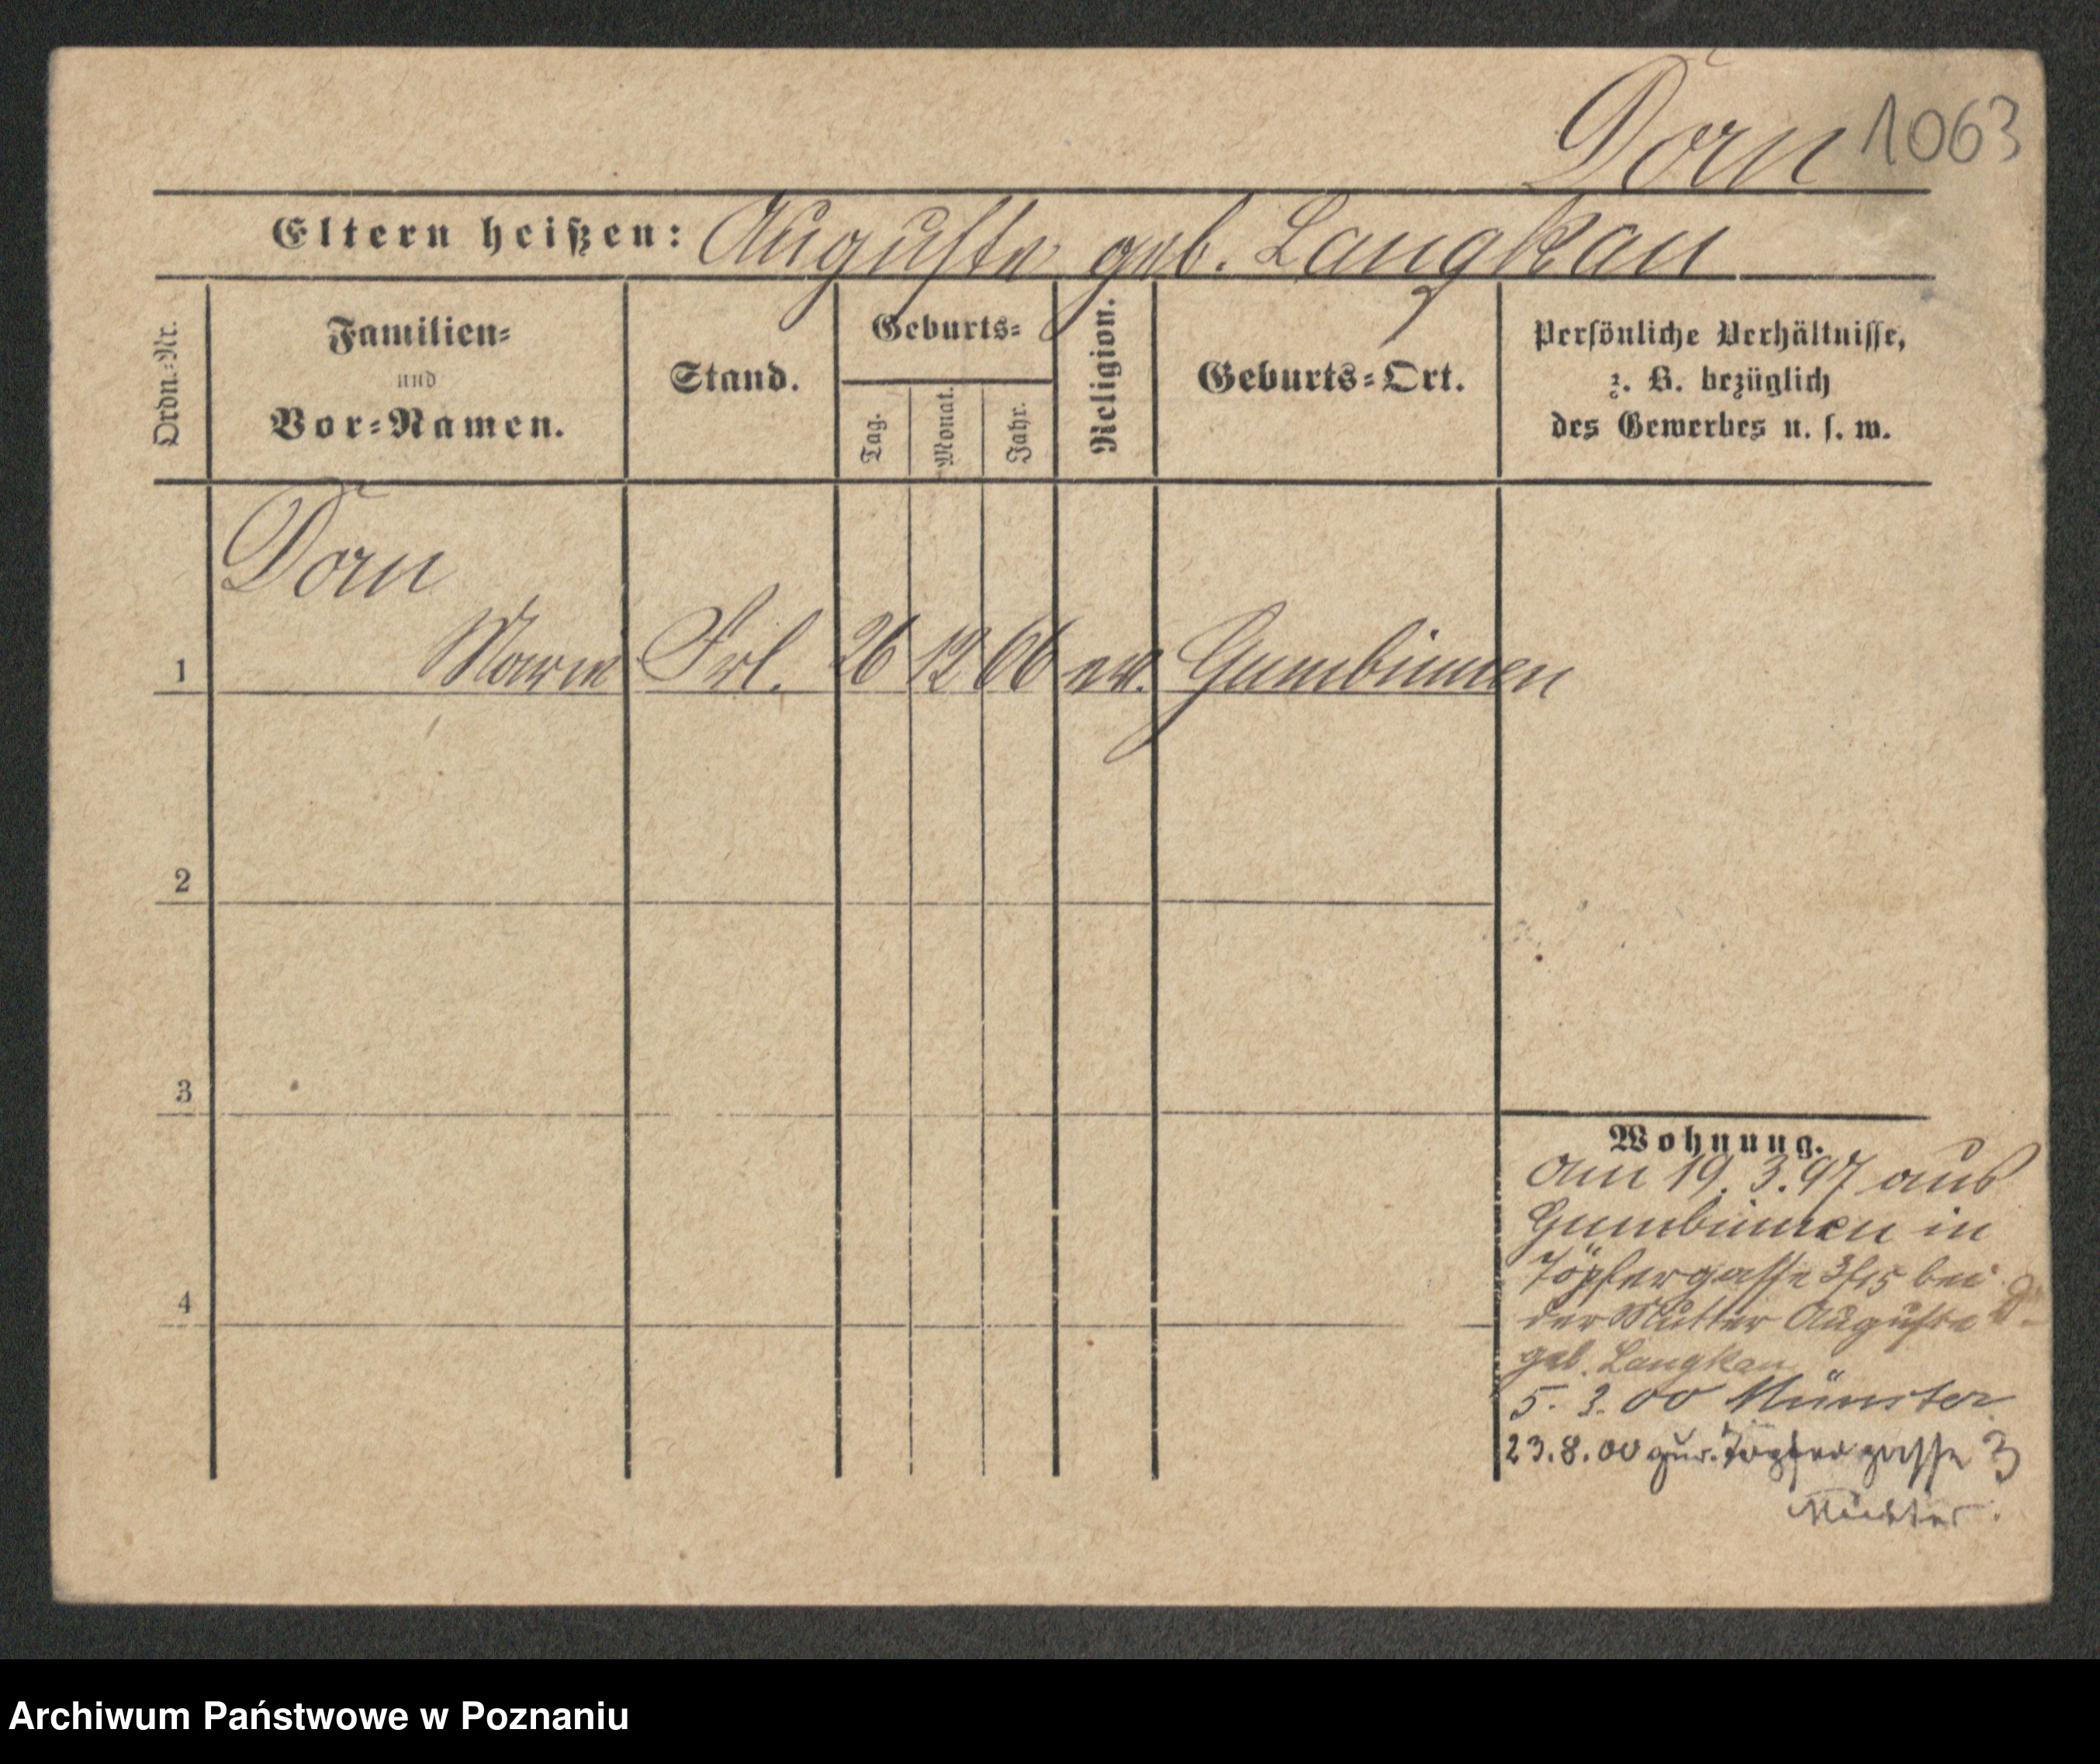 Dorn 1063
Eltern heißen: Auguste geb. Langkau
Ordn.-Nr.
Familien-
und
Vor-Namen.
Stand.
Geburts-
Tag.
Monat.
Jahr.
Religion.
Geburts-Ort.
Persönliche Verhältnisse,
z. B. bezüglich
des Gewerbes u. s. w.
Dorn
1 Marie Frl. 26 12 66 ev. Gumbinnen
2
3
4
Wohnung.
am 19.3.97 aus
Gumbinnen in
Töpfergasse 3/15 bei
der Mutter Auguste D.
geb. Langkau
5. 3. 00 Münster
23.8.00 zur. Töpfergasse 3
Archiwum Państwowe w Poznaniu